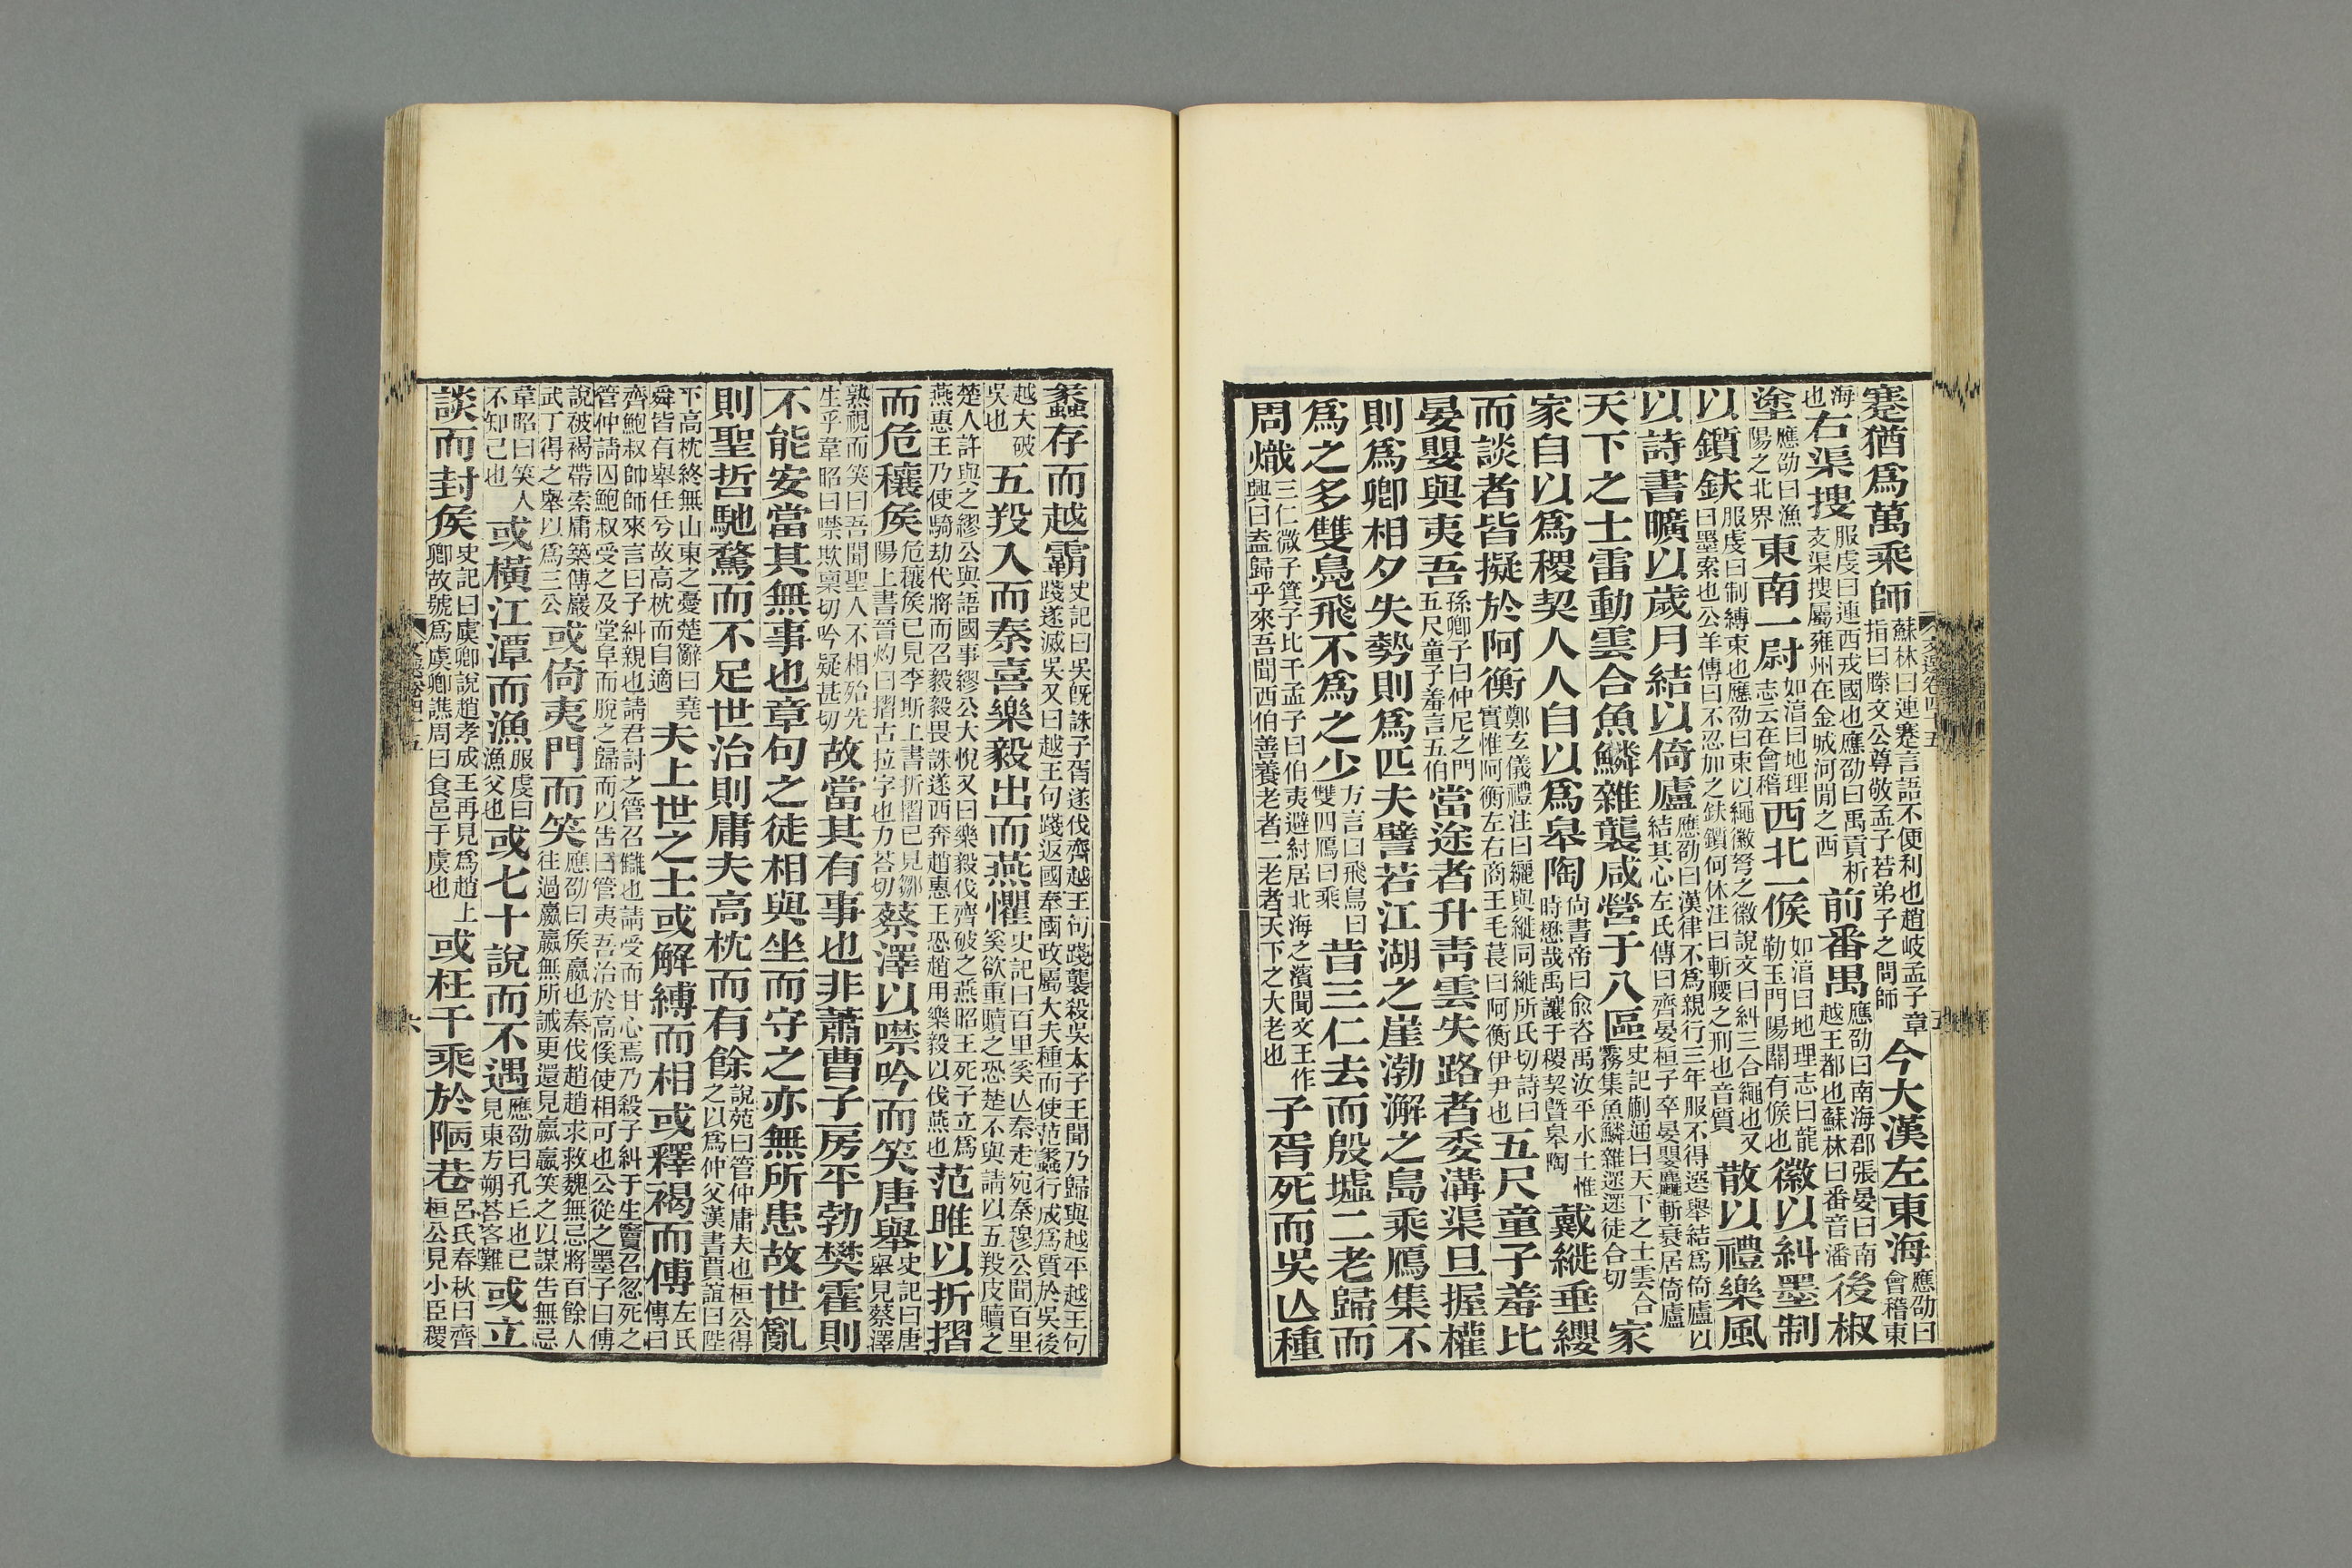 蹇猶爲萬乘師蘇林曰連蹇言語不便利也趙岐孟子章指曰滕文公尊敬孟子若弟子之問師今大漢左東海應劭曰會稽東
海也右渠搜服虔曰連西戎國也應劭曰禹貢析支渠搜屬雍州在金城河閒之西前番禺應劭曰南海郡張晏曰南越王都也蘇林曰番音潘後椒
塗應劭曰漁陽之北界東南一尉如湻曰地理志云在會稽西北一候如湻曰地理志曰龍勒玉門陽關有候也徽以糾墨制
以鑕鈇服虔曰制縛束也應劭曰束以繩徽弩之徽說文曰糾三合繩也又曰墨索也公羊傳曰不忍加之鈇鑕何休注曰斬腰之刑也音質散以禮樂風
以詩書曠以歲月結以倚廬應劭曰漢律不爲親行三年服不得選舉結爲倚廬以結其心左氏傳曰齊晏桓子卒晏嬰麤斬衰居倚廬
天下之士雷動雲合魚鱗雜襲咸營于八區史記蒯通曰天下之士雲合霧集魚鱗雜遝遝徒合切家
家自以爲稷契人人自以爲皋陶尙書帝曰俞咨禹汝平水土惟時懋哉禹讓于稷契曁皋陶戴縰垂纓
而談者皆擬於阿衡鄭玄儀禮注曰纚與縰同縰所氏切詩曰實惟阿衡左右商王毛萇曰阿衡伊尹也五尺童子羞比
晏嬰與夷吾孫卿子曰仲尼之門五尺童子羞言五伯當途者升靑雲失路者委溝渠旦握權
則爲卿相夕失勢則爲匹夫譬若江湖之崖渤澥之島乘鴈集不
爲之多雙鳧飛不爲之少方言曰飛鳥曰雙四鴈曰乘昔三仁去而殷墟二老歸而
周熾三仁微子箕子比干孟子曰伯夷避紂居北海之濱聞文王作興曰盍歸乎來吾聞西伯善養老者二老者天下之大老也子胥死而吳亾種
蠡存而越霸史記曰吳旣誅子胥遂伐齊越王句踐襲殺吳太子王聞乃歸與越平越王句踐遂滅吳又曰越王句踐返國奉國政屬大夫種而使范蠡行成爲質於吳後
越大破吳也五羖入而秦喜樂毅出而燕懼史記曰百里奚亾秦走宛秦穆公聞百里奚欲重贖之恐楚不與請以五羖皮贖之
楚人許與之繆公與語國事繆公大悅又曰樂毅伐齊破之燕昭王死子立爲燕惠王乃使騎劫代將而召毅毅畏誅遂西奔趙惠王恐趙用樂毅以伐燕也范雎以折摺
而危穰侯危穰侯已見李斯上書折摺已見鄒陽上書晉灼曰摺古拉字也力荅切蔡澤以噤吟而笑唐舉史記曰唐舉見蔡澤
熟視而笑曰吾聞聖人不相殆先生乎韋昭曰噤欺稟切吟疑甚切故當其有事也非蕭曹子房平勃樊霍則
不能安當其無事也章句之徒相與坐而守之亦無所患故世亂
則聖哲馳騖而不足世治則庸夫高枕而有餘說苑曰管仲庸夫也桓公得之以爲仲父漢書賈誼曰陛
下高枕終無山東之憂楚辭曰堯舜皆有舉任兮故高枕而自適夫上世之士或解縛而相或釋褐而傅左氏傳曰
齊鮑叔帥師來言曰子糾親也請君討之管召讎也請受而甘心焉乃殺子糾于生竇召忽死之管仲請囚鮑叔受之及堂阜而脫之歸而以告曰管夷吾治於高傒使相可也公從之墨子曰傅
說被褐帶索庸築傅巖武丁得之舉以爲三公或倚夷門而笑應劭曰侯嬴也秦伐趙趙求救魏無忌將百餘人往過嬴嬴無所誡更還見嬴嬴笑之以謀告無忌
韋昭曰笑人不知己也或橫江潭而漁服虔曰漁父也或七十說而不遇應劭曰孔丘也已見東方朔荅客難或立
談而封侯史記曰虞卿說趙孝成王再見爲趙上卿故號爲虞卿譙周曰食邑于虞也或枉千乘於陋巷呂氏春秋曰齊桓公見小臣稷